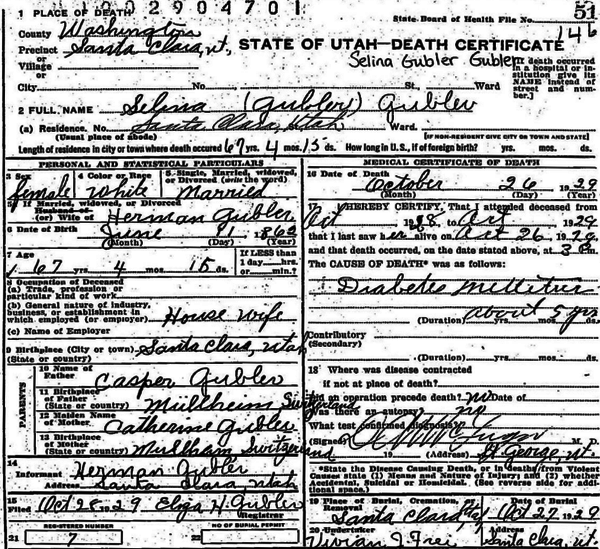 002904701
51
1 PLACE OF DEATH
State Board of Health File No. 146
County Washington
Precinct Santa Clara, ut,
or
Village
or
STATE OF UTAH—DEATH CERTIFICATE
Selina Gubler Gubler
[If death occurred
in a hospital or in-
stitution give its
NAME instead of
street and num-
ber.]
City No. St., Ward
2 FULL NAME Selena (Gubler) Gubler
(a) Residence. No. Santa Clara, Utah Ward.
(Usual place of abode) [IF NON-RESIDENT GIVE CITY OR TOWN AND STATE]
Length of residence in city or town where death occurred 67 yrs. 4 mos. 15 ds. How long in U.S., if of foreign birth? yrs. mos. ds.
PERSONAL AND STATISTICAL PARTICULARS
3 Sex
female
4 Color or Race
White
5 Single, Married, widowed,
or Divorced (write the word)
Married
5a If Married, widowed, or Divorced
Husband of
(or) Wife of Herman Gubler
6 Date of Birth June 11 1862
(Month) (Day) (Year)
7 Age
67 yrs. 4 mos. 15 ds.
If LESS than
1 day, hrs.
or min.?
8 Occupation of Deceased
(a) Trade, profession or
particular kind of work
(b) General nature of industry,
business, or establishment in
which employed (or employer) House Wife
(c) Name of Employer
9 Birthplace (City or town) Santa Clara, Utah
(State or country)
PARENTS
10 Name of
Father Casper Gubler
11 Birthplace of
Father
(State or country) Mullheim Switzerland
12 Maiden Name
of Mother Catherine Gubler
13 Birthplace of
Mother
(State or country) Mulham Switzerland
14
Informant Herman Gubler
Address Santa Clara, Utah
15
Filed Oct 28 1929 Eliza H. Gubler
Registrar
21 REGISTERED NUMBER
7
22 NO OF BURIAL PERMIT
MEDICAL CERTIFICATE OF DEATH
16 Date of Death
October 26 1929
(Month) (Day) (Year)
17 I HEREBY CERTIFY, That I attended deceased from
Oct 1928 to Oct 1929
that I last saw her alive on Oct 26, 1929,
and that death occurred, on the date stated above, at 3
The CAUSE OF DEATH* was as follows:
Diabetes Millitus
about 5 yrs
(Duration) yrs. mos. ds.
Contributory
(Secondary)
(Duration) yrs. mos. ds.
18 Where was disease contracted
if not at place of death?
Did an operation precede death? no Date of
Was there an autopsy? no
What test confirmed diagnosis?
(Signed) M. D.
19 (Address) St George, ut.
*State the Disease Causing Death, or in deaths from Violent
Causes state (1) Means and Nature of Injury; and (2) whether
Accidental, Suicidal or Homicidal. (See reverse side for addi-
tional space.)
19 Place of Burial, Cremation, or
Removal
Santa Clara
Date of Burial
Oct 27 1929
20 Undertaker
Vivian J. Frei
Address
Santa Clara, ut